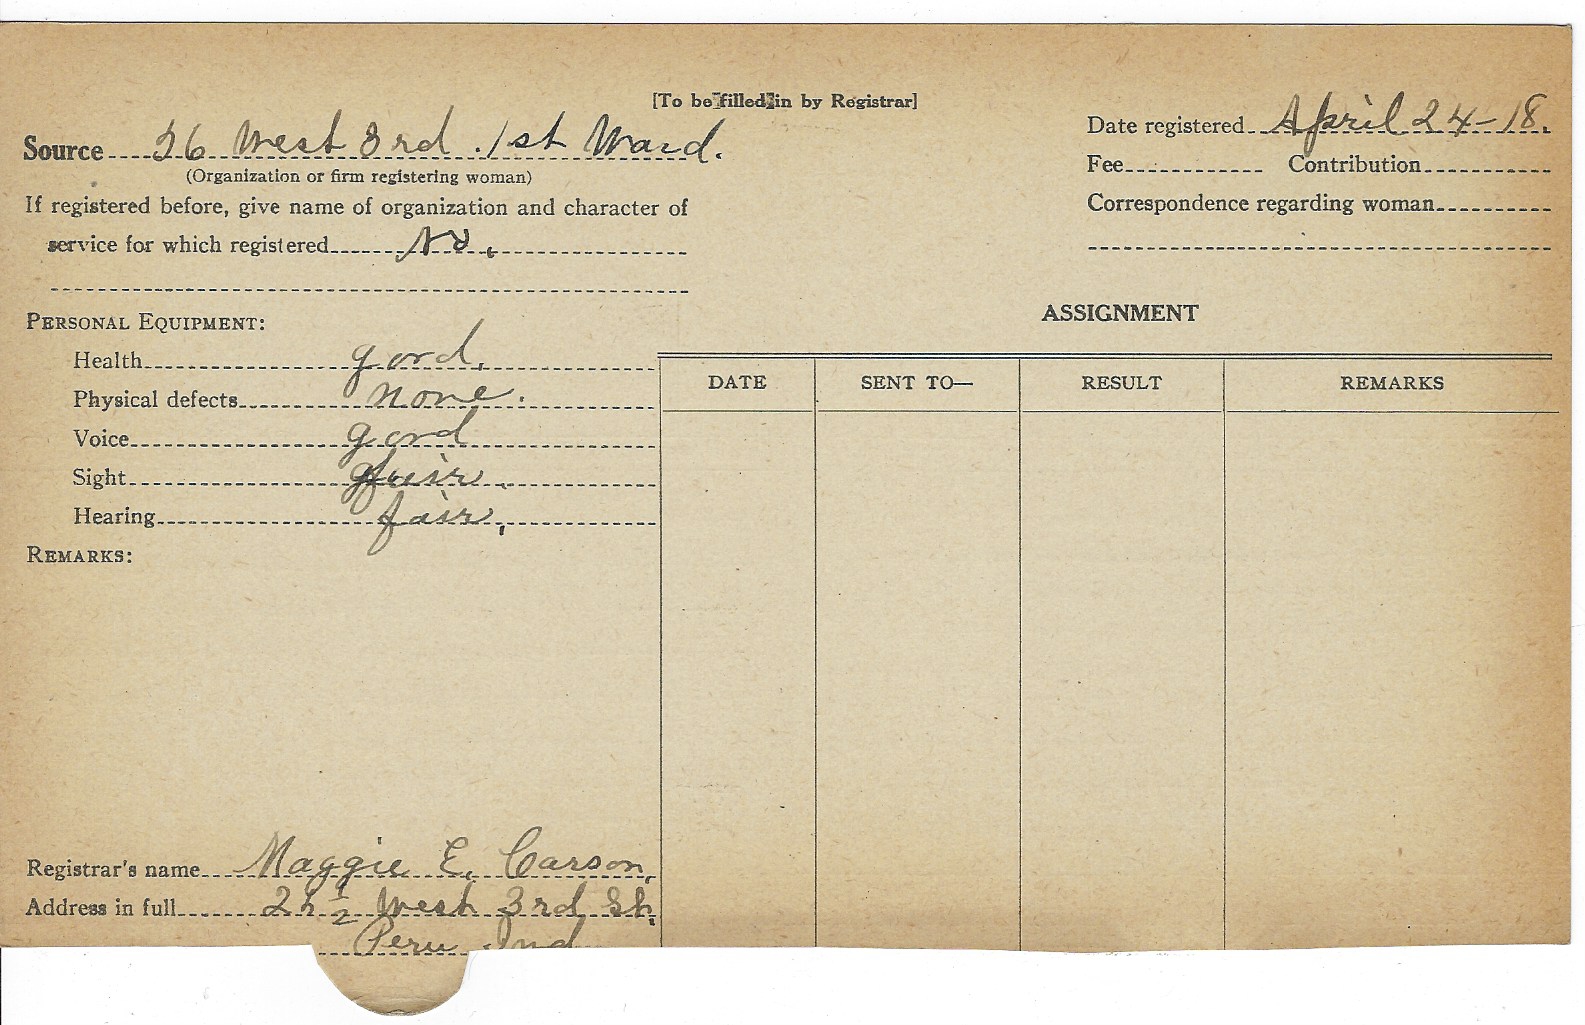 [To be filled in by Registrar]
Source 26 West 3rd. 1st Ward.
(Organization or firm registering woman)
If registered before, give name of organization and character of
service for which registered No.
Date registered April 24-18.
Fee Contribution
Correspondence regarding woman
PERSONAL EQUIPMENT:
Health good.
Physical defects none.
Voice good
Sight fair.
Hearing fair.
REMARKS:
ASSIGNMENT
DATE SENT TO— RESULT REMARKS
Registrar's name Maggie E. Carson.
Address in full 1/2 West 3rd St.
Peru Ind